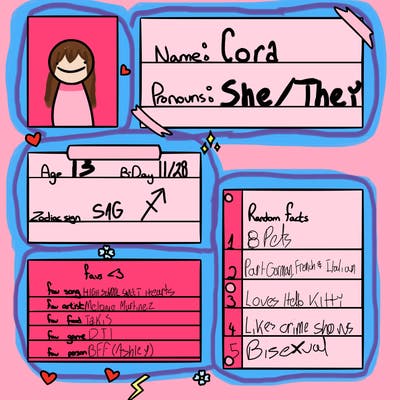 Name: Cora
Pronouns: She/They
Age 13 B-Day 11/28
Zodiac sign SAG
Favs <3
fav song High school sweet hearts
fav artist Melanie Martinez
fav food Takis
fav game DTI
fav person BFF (Ashley)
Random facts
1 8 Pets
2 Part German, French & Italian
3 Loves Hello Kitty
4 Likes crime shows
5 Bisexual